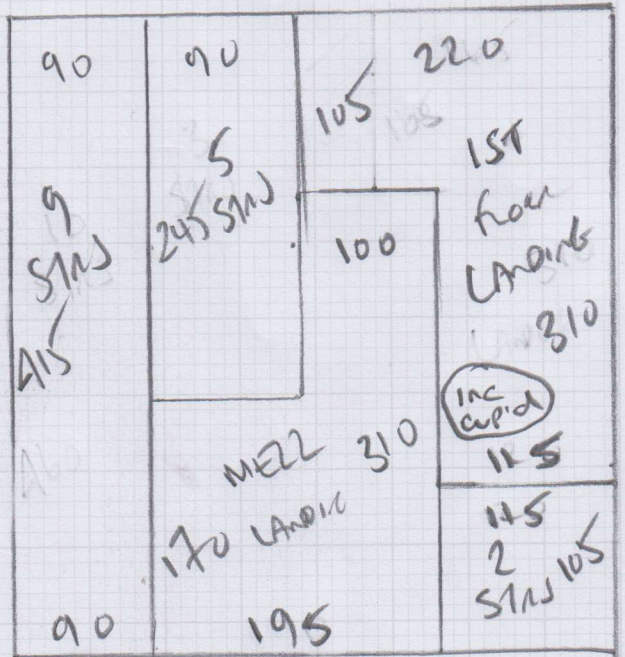 90
9
STRS
415
90
90
5
STRS
245
105
220
1ST
FLOOR
LANDING
310
INC
CUP'D
115
100
MEZZ 310
170 LANDING
195
115
2
STRS 105